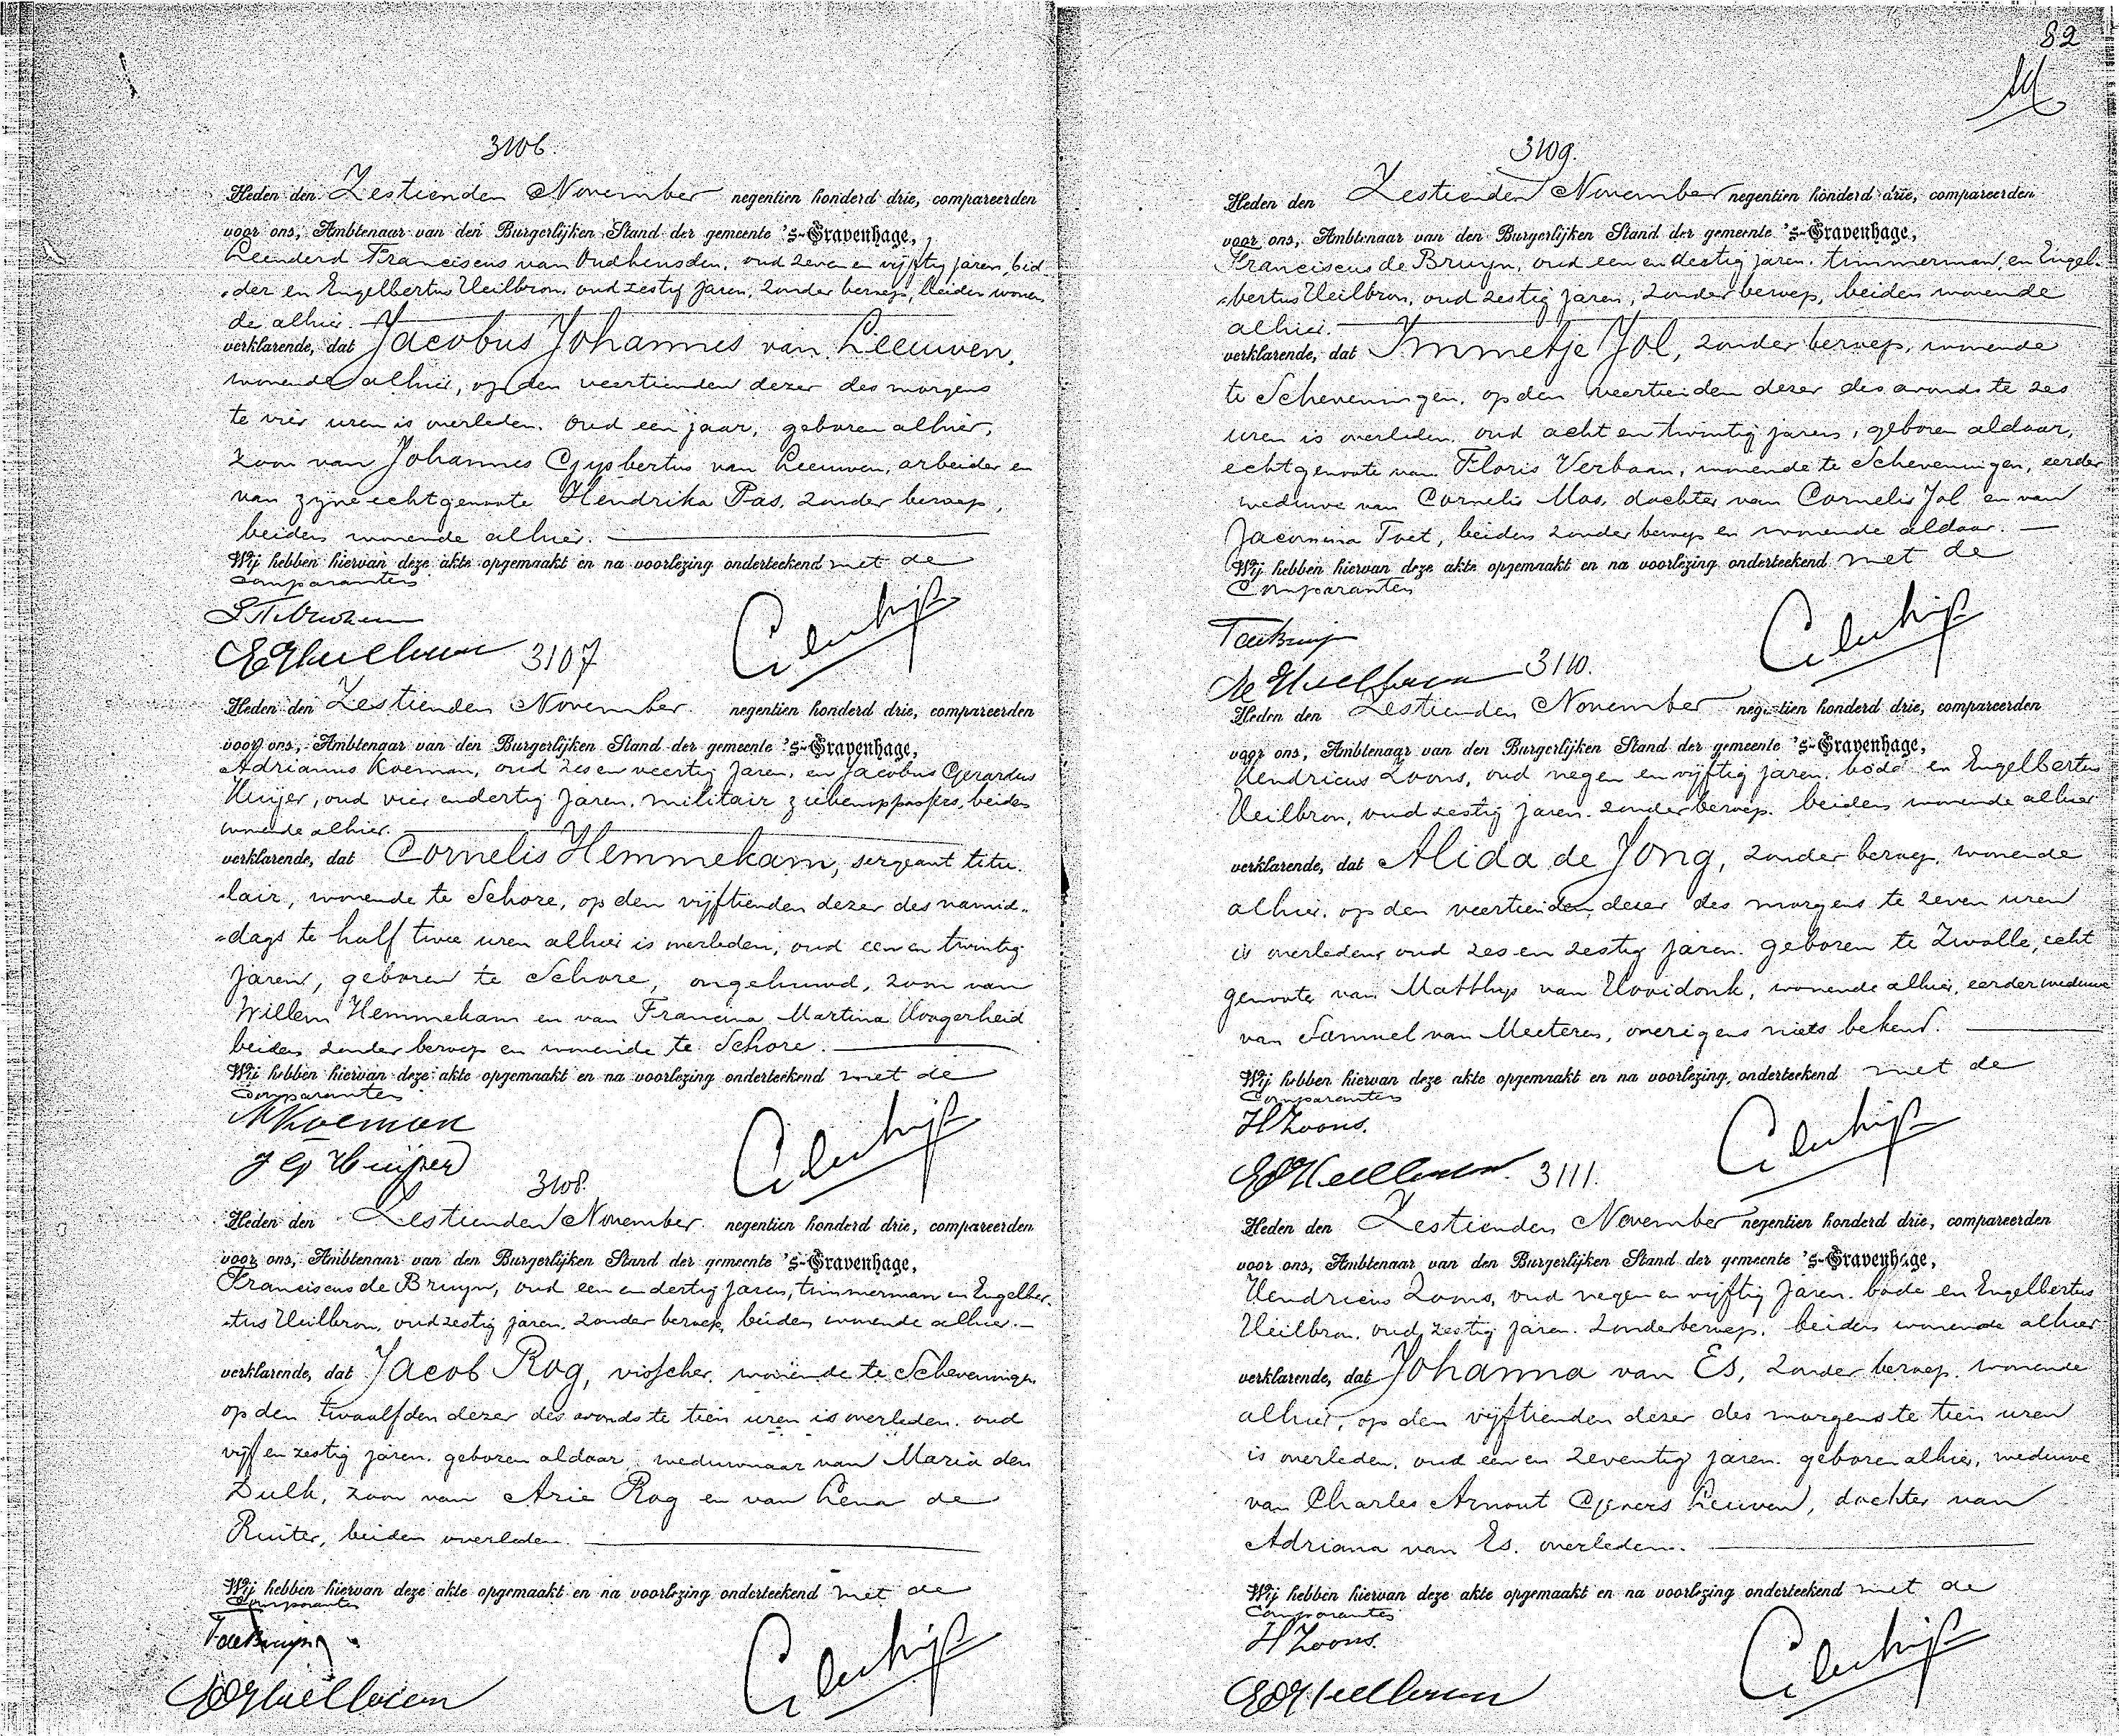 3106.
Heden den Zestienden November negentien honderd drie, compareerden
voor ons, Ambtenaar van den Burgerlijken Stand der gemeente 's-Gravenhage,
Leenderd Franciscus van Oudheusden, oud zeven en vijftig jaren, bid-
der en Engelbertus Heilbron, oud zestig jaren, zonder beroep, beiden wonen
de alhier.
verklarende, dat Jacobus Johannes van Leeuwen,
wonende alhier, op den veertienden dezer des morgens
te vier uren is overleden. oud een jaar, geboren alhier,
zoon van Johannes Gysbertus van Leeuwen, arbeider en
van zijne echtgenoote Hendrika Pas, zonder beroep,
beiden wonende alhier.
Wij hebben hiervan deze akte opgemaakt en na voorlezing onderteekend met de
Comparanten
3107
Heden den Zestienden November negentien honderd drie, compareerden
voor ons, Ambtenaar van den Burgerlijken Stand der gemeente 's-Gravenhage,
Adrianus Koeman, oud zes en veertig jaren, en Jacobus Gerardus
Huijer, oud vier en dertig jaren, militair ziekenoppassers, beiden
wonende alhier.
verklarende, dat Cornelis Hemmekam, sergeant titu-
lair, wonende te Schore, op den vijftienden dezer des namid-
dags te half twee uren alhier is overleden, oud een en twintig
jaren, geboren te Schore, ongehuwd, zoon van
Willem Hemmekam en van Francina Martina Hoogerheid
beiden zonder beroep en wonende te Schore.
Wij hebben hiervan deze akte opgemaakt en na voorlezing onderteekend met de
Comparanten
AKoeman
J G Huijer
3108.
Heden den Zestienden November negentien honderd drie, compareerden
voor ons, Ambtenaar van den Burgerlijken Stand der gemeente 's-Gravenhage,
Franciscus de Bruyn, oud een en dertig jaren, timmerman en Engelber-
tus Heilbron, oud zestig jaren, zonder beroep, beiden wonende alhier.
verklarende, dat Jacob Rog, visscher, wonende te Scheveningen
op den twaalfden dezer des avonds te tien uren is overleden. oud
vijf en zestig jaren. geboren aldaar, weduwnaar van Maria den
Dulk, zoon van Arie Rog en van Lena de
Ruiter, beiden overleden.
Wij hebben hiervan deze akte opgemaakt en na voorlezing onderteekend met de
Comparanten
FdeBruijn
82
3109.
Heden den Zestienden November negentien honderd drie, compareerden
voor ons, Ambtenaar van den Burgerlijken Stand der gemeente 's-Gravenhage,
Franciscus de Bruyn, oud een en dertig jaren, timmerman, en Engel-
bertus Heilbron, oud zestig jaren, zonder beroep, beiden wonende
alhier.
verklarende, dat Immetje Jol, zonder beroep, wonende
te Scheveningen, op den veertienden dezer des avonds te zes
uren is overleden, oud acht en twintig jaren, geboren aldaar,
echtgenoote van Floris Verbaan, wonende te Scheveningen, eerder
weduwe van Cornelis Mos, dochter van Cornelis Jol en van
Jacomina Toet, beiden zonder beroep en wonende aldaar.
Wij hebben hiervan deze akte opgemaakt en na voorlezing onderteekend met de
Comparanten
FdeBruijn
3110.
Heden den Zestienden November negentien honderd drie, compareerden
voor ons, Ambtenaar van den Burgerlijken Stand der gemeente 's-Gravenhage,
Hendricus Zoons, oud negen en vijftig jaren. bode en Engelbertus
Heilbron, oud zestig jaren. zonder beroep. beiden wonende alhier
verklarende, dat Alida de Jong, zonder beroep, wonende
alhier, op den veertienden dezer des morgens te zeven uren
is overleden, oud zes en zestig jaren. geboren te Zwolle, echt
genoote van Matthys van Hooidonk, wonende alhier, eerder weduwe
van Samuel van Meeteren, overigens niets bekend.
Wij hebben hiervan deze akte opgemaakt en na voorlezing onderteekend met de
Comparanten
HZoons.
3111.
Heden den Zestienden November negentien honderd drie, compareerden
voor ons, Ambtenaar van den Burgerlijken Stand der gemeente 's-Gravenhage,
Hendricus Zoons, oud negen en vijftig jaren. bode en Engelbertus
Heilbron, oud zestig jaren. zonder beroep. beiden wonende alhier
verklarende, dat Johanna van Es, zonder beroep. wonende
alhier, op den vijftienden dezer des morgens te tien uren
is overleden, oud een en zeventig jaren. geboren alhier, weduwe
van Charles Arnout Leeuwen, dochter van
Adriana van Es. overleden.
Wij hebben hiervan deze akte opgemaakt en na voorlezing onderteekend met de
Comparanten
HZoons.